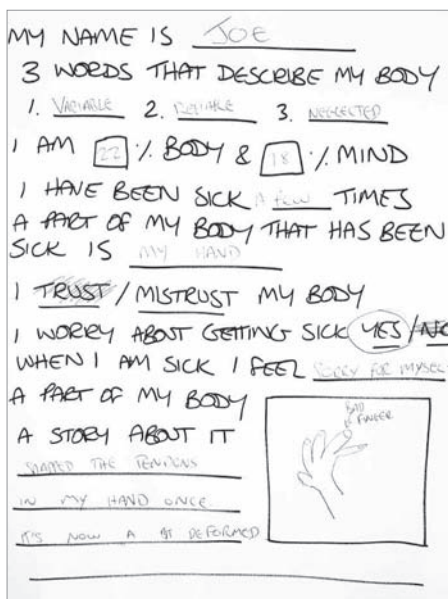 MY NAME IS JOE
3 WORDS THAT DESCRIBE MY BODY
1. VARIABLE 2. RELIABLE 3. NEGLECTED
I AM 22 % BODY & 18 % MIND
I HAVE BEEN SICK A FEW TIMES
A PART OF MY BODY THAT HAS BEEN
SICK IS MY HAND
I TRUST / MISTRUST MY BODY
I WORRY ABOUT GETTING SICK YES / NO
WHEN I AM SICK I FEEL SORRY FOR MYSEL
A PART OF MY BODY
A STORY ABOUT IT
THE TENDONS
IN MY HAND ONCE.
IT'S NOW A DEFORMED
BAD
FINGER